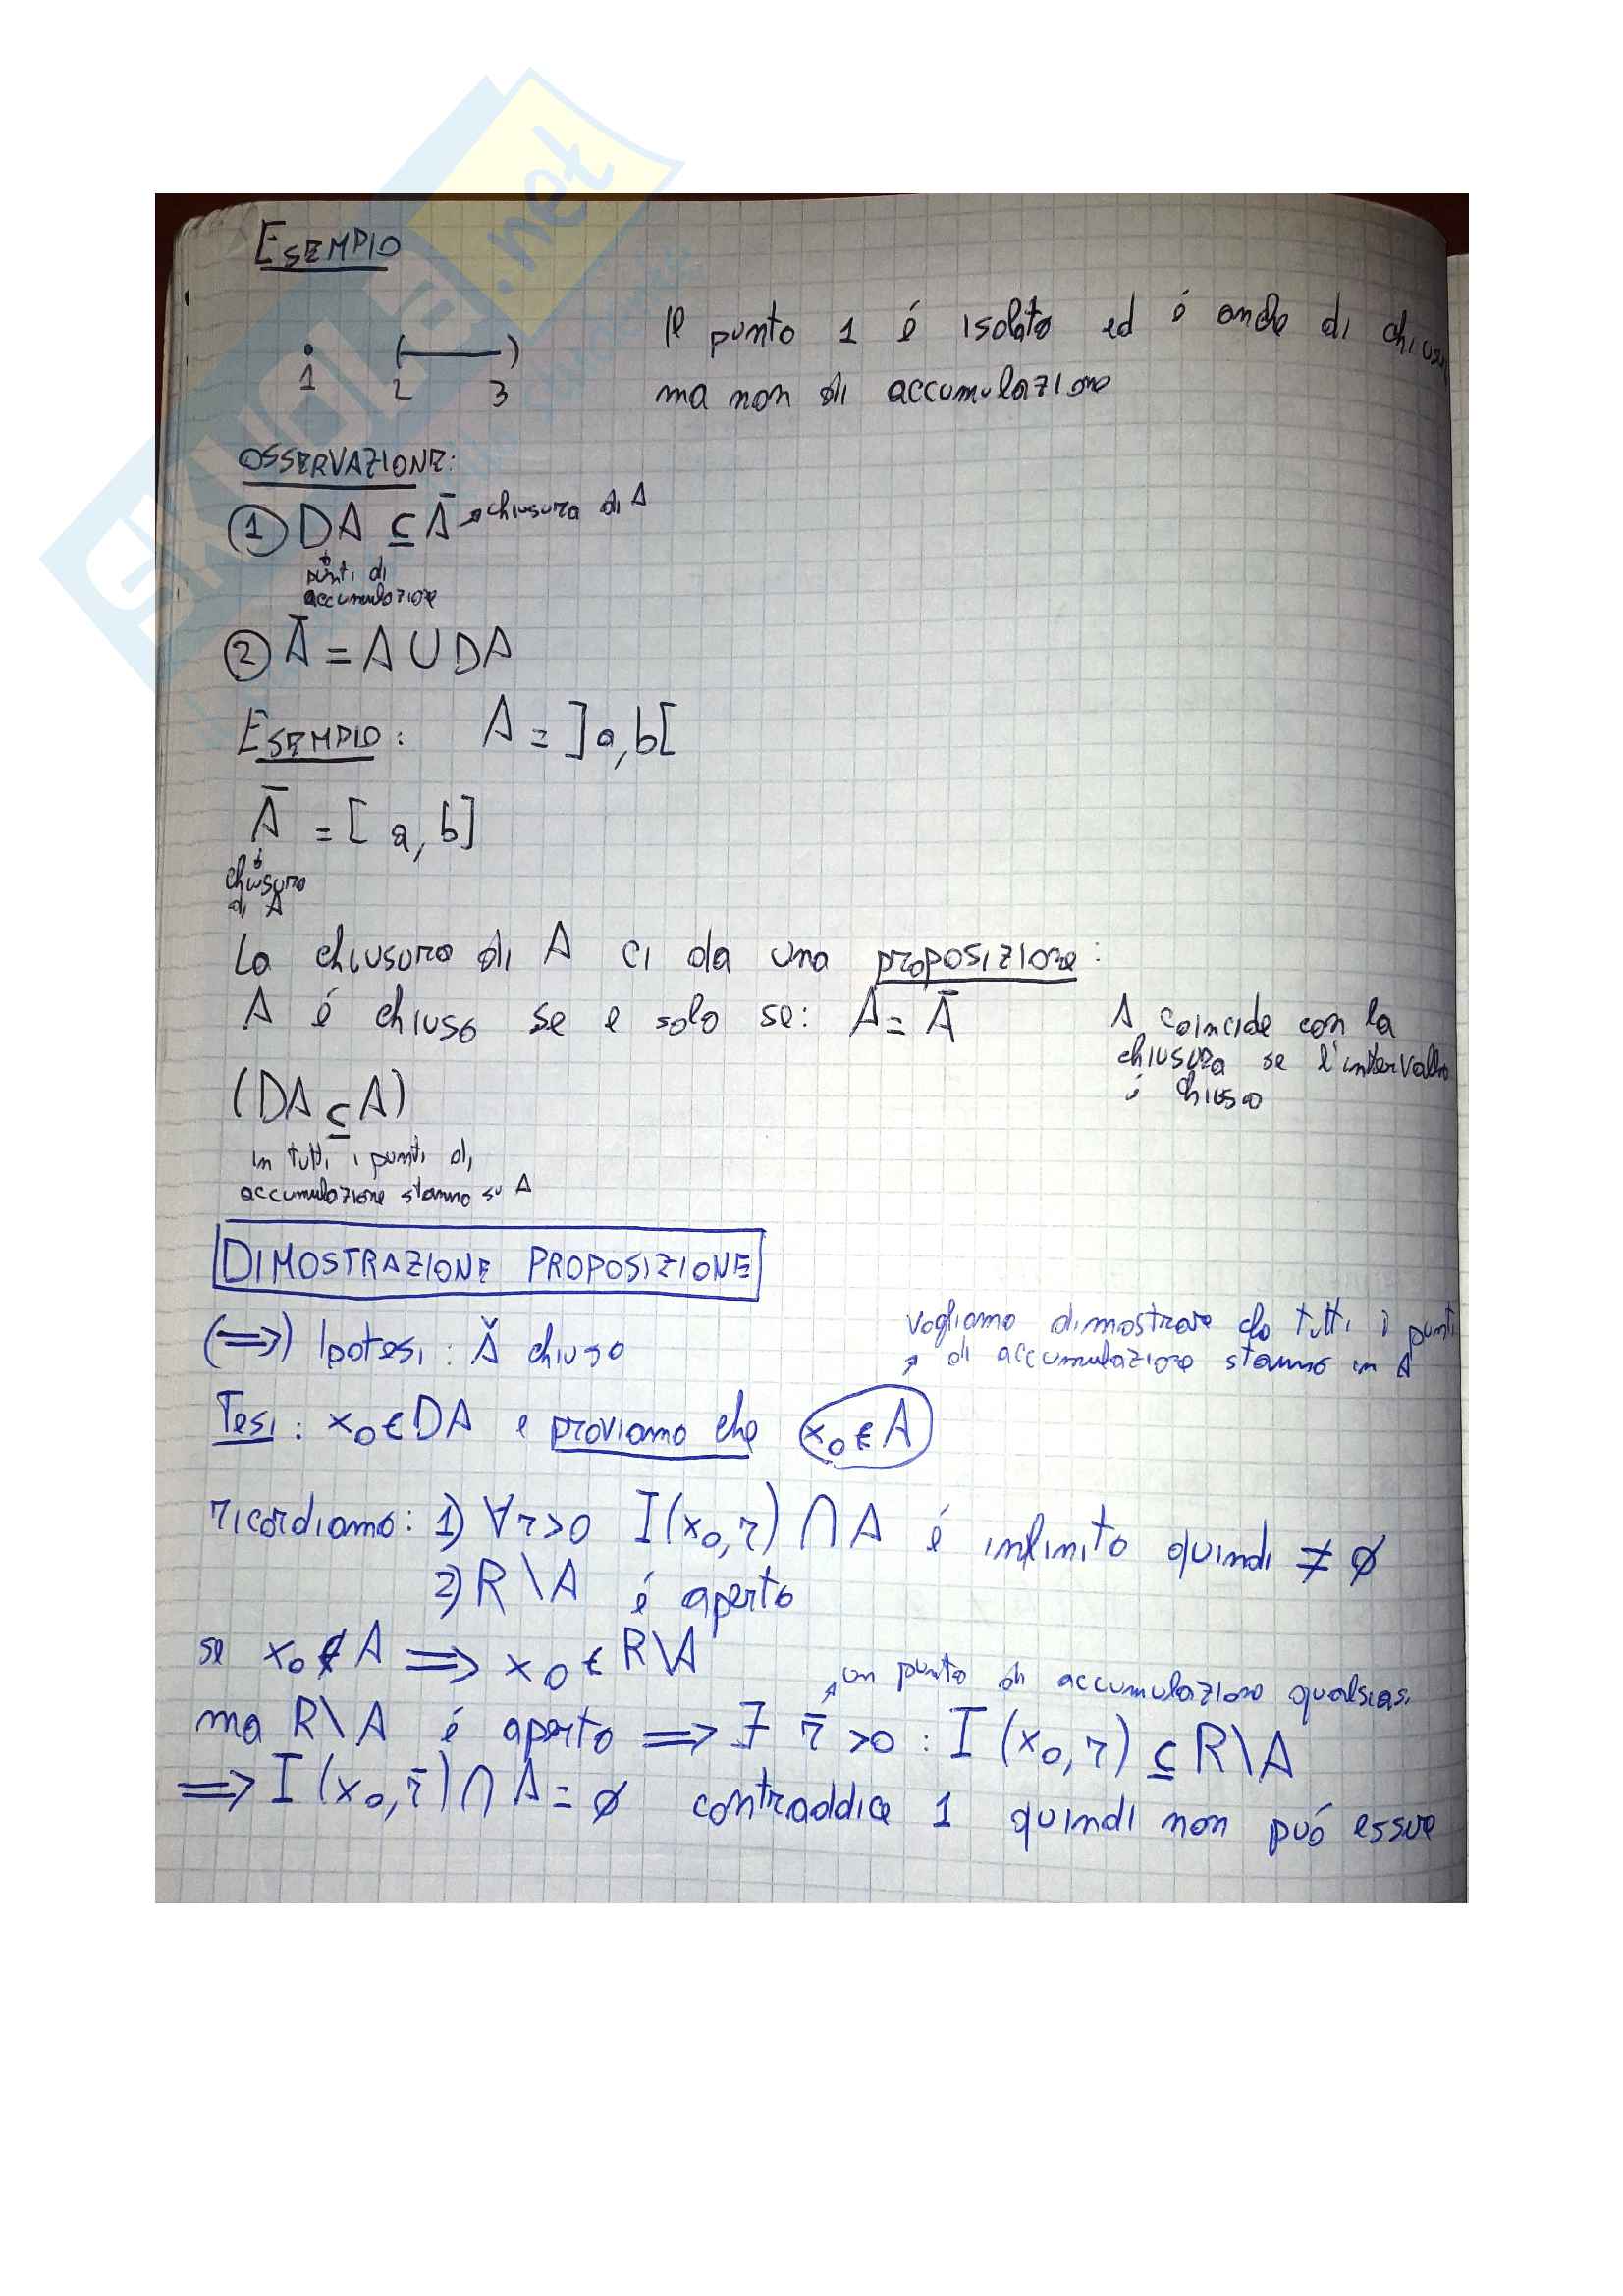 ESEMPIO
Il punto 1 é isolato ed é anche di
1 2 3
ma non di accumulazione
OSSERVAZIONE:
① DA ⊆ Ā → chiusura di A
punti di
accumulazione
② Ā = A ∪ DA
ESEMPIO: A = ]a,b[
Ā = [a,b]
chiusura
di A
La chiusura di A ci da una proposizione:
A é chiuso se e solo se: A = Ā
A coincide con la
chiusura se l'intervallo
é chiuso
(DA ⊆ A)
in tutti i punti di
accumulazione stanno su A
DIMOSTRAZIONE PROPOSIZIONE
vogliamo dimostrare che tutti i punti
di accumulazione stanno in A
(⟹) Ipotesi: Ǎ chiuso
Tesi: x₀ ∈ DA e proviamo che x₀ ∈ A
ricordiamo: 1) ∀r>0 I(x₀,r) ∩ A é infinito quindi ≠ ∅
2) R\A é aperto
se x₀ ∉ A ⟹ x₀ ∈ R\A
un punto di accumulazione qualsiasi
ma R\A é aperto ⟹ ∃ r̄ >0 : I(x₀,r) ⊆ R\A
⟹ I(x₀,r̄) ∩ A = ∅ contraddice 1 quindi non puó essere
SKUOLA.net